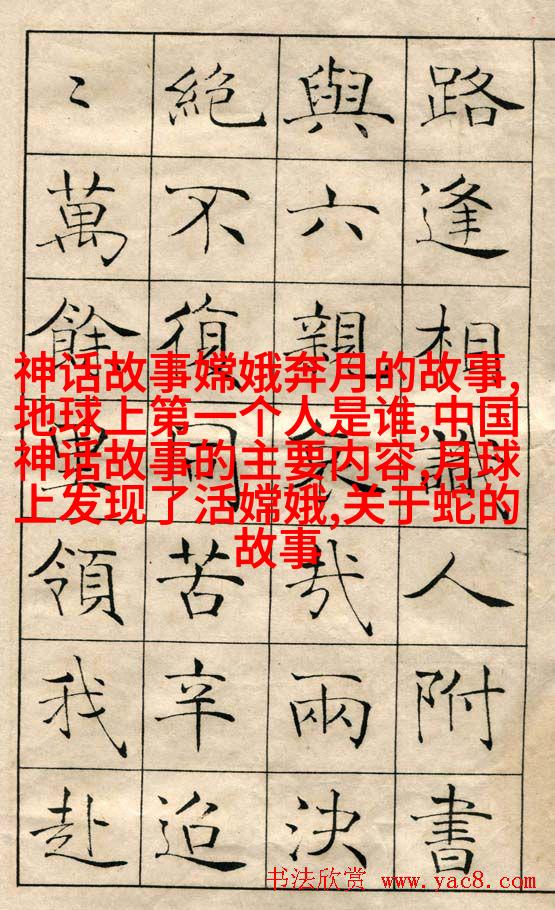 路逢相識人附書
與六親哀哉兩決
絕不復同苦辛迢
〻萬餘里領我赴
神话故事嫦娥奔月的故事,
地球上第一个人是谁,中国
神话故事的主要内容,月球
上发现了活嫦娥,关于蛇的
故事
书法欣赏 www.yac8.com